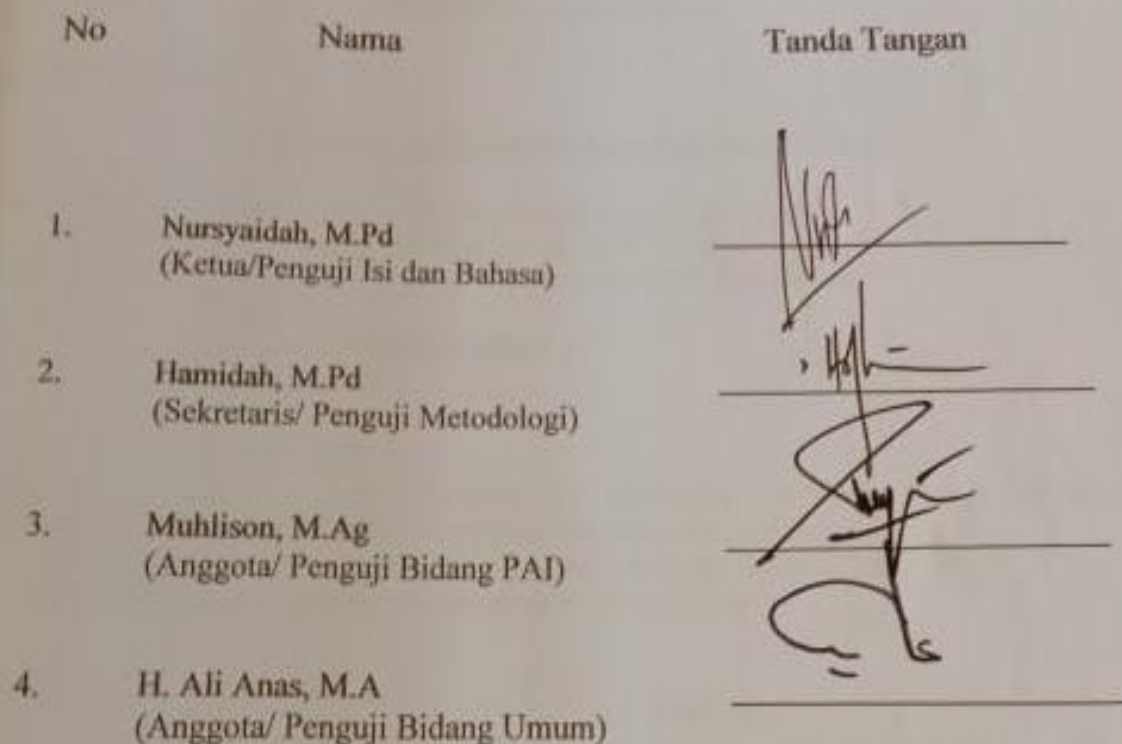 No Nama Tanda Tangan
1. Nursyaidah, M.Pd
(Ketua/Penguji Isi dan Bahasa)
2. Hamidah, M.Pd
(Sekretaris/ Penguji Metodologi)
3. Muhlison, M.Ag
(Anggota/ Penguji Bidang PAI)
4. H. Ali Anas, M.A
(Anggota/ Penguji Bidang Umum)